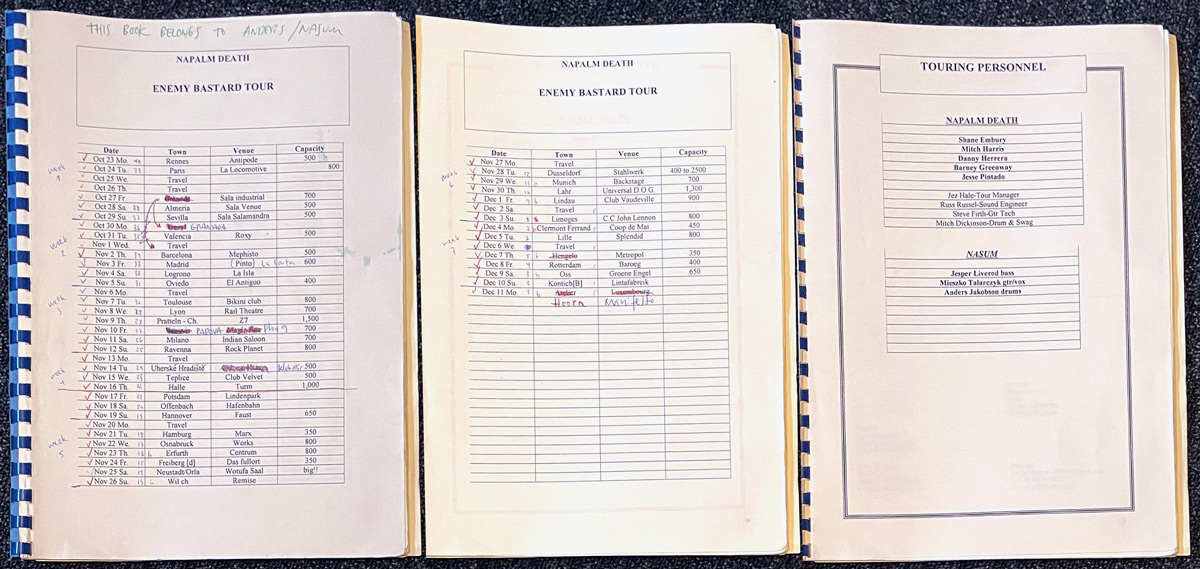 THIS BOOK BELONGS TO ANDERS/NASUM
NAPALM DEATH
ENEMY BASTARD TOUR
Date Town Venue Capacity
week 1
Oct 23 Mo. Rennes Antipode 500
Oct 24 Tu. Paris La Locomotive 800
Oct 25 We. Travel
Oct 26 Th. Travel
Oct 27 Fr. Sala industrial 700
Oct 28 Sa. Almeria Sala Venue 500
Oct 29 Su. Sevilla Sala Salamandra 500
Oct 30 Mo. GRANADA
Oct 31 Tu. Valencia Roxy 500
week 2
Nov 1 Wed. Travel
Nov 2 Th. Barcelona Mephisto 500
Nov 3 Fr. Madrid (Pinto) 600
Nov 4 Sa. Logrono La Isla
Nov 5 Su. Oviedo El Antiguo 400
Nov 6 Mo. Travel
week 3
Nov 7 Tu. Toulouse Bikini club 800
Nov 8 We. Lyon Rail Theatre 700
Nov 9 Th. Pratteln - Ch. Z7 1,500
Nov 10 Fr. PADOVA 700
Nov 11 Sa. Milano Indian Saloon 700
Nov 12 Su. Ravenna Rock Planet 800
Nov 13 Mo. Travel
week 4
Nov 14 Tu. Uherské Hradiště 500
Nov 15 We. Teplice Club Velvet 500
Nov 16 Th. Halle Turm 1,000
Nov 17 Fr. Potsdam Lindenpark
Nov 18 Sa. Offenbach Hafenbahn
Nov 19 Su. Hannover Faust 650
Nov 20 Mo. Travel
Nov 21 Tu. Hamburg Marx 350
week 5
Nov 22 We. Osnabruck Works 800
Nov 23 Th. Erfurth Centrum 800
Nov 24 Fr. Freiberg [d] Das fullort 350
Nov 25 Sa. Neustadt/Orla Wotufa Saal big!!
Nov 26 Su. Wil ch Remise
NAPALM DEATH
ENEMY BASTARD TOUR
Date Town Venue Capacity
Nov 27 Mo. Travel
week 6
Nov 28 Tu. Dusseldorf Stahlwerk 400 to 2500
Nov 29 We. Munich Backstage 700
Nov 30 Th. Lahr Universal D.O.G. 1,300
Dec 1 Fr. Lindau Club Vaudeville 900
Dec 2 Sa. Travel
Dec 3 Su. Limoges C.C John Lennon 800
Dec 4 Mo. Clermont Ferrand Coop de Mai 450
week 7
Dec 5 Tu. Lille Splendid 800
Dec 6 We. Travel
Dec 7 Th. Hengelo Metropol 350
Dec 8 Fr. Rotterdam Baroeg 400
Dec 9 Sa. Oss Groene Engel 650
Dec 10 Su. Kontich[B] Lintafabriek
Dec 11 Mo. Atelier Luxembourg
Hoorn Manifesto
TOURING PERSONNEL
NAPALM DEATH
Shane Embury
Mitch Harris
Danny Herrera
Barney Greenway
Jesse Pintado
Jez Hale-Tour Manager
Russ Russel-Sound Engineer
Steve Firth-Gtr Tech
Mitch Dickinson-Drum & Swag
NASUM
Jesper Liverod bass
Mieszko Talarczyk gtr/vox
Anders Jakobson drums